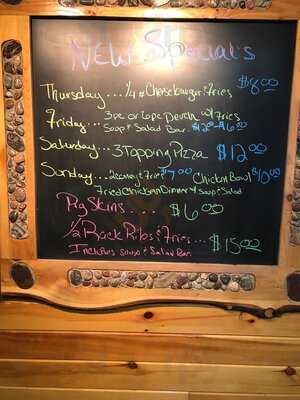 New Specials
Thursday... 1/4 # Cheeseburger & Fries $8.00
Friday... 3pc or 6pc Perch w/ Fries
Soup & Salad Bar
Saturday... 3 Topping Pizza $12.00
Sunday... & Fries $7.00 Chicken Bowl $10.00
Fried Chicken Dinner w/ Soup & Salad
Pig Skins.... $6.00
1/2 Rack Ribs & Fries... $15.00
Includes Soup & Salad Bar